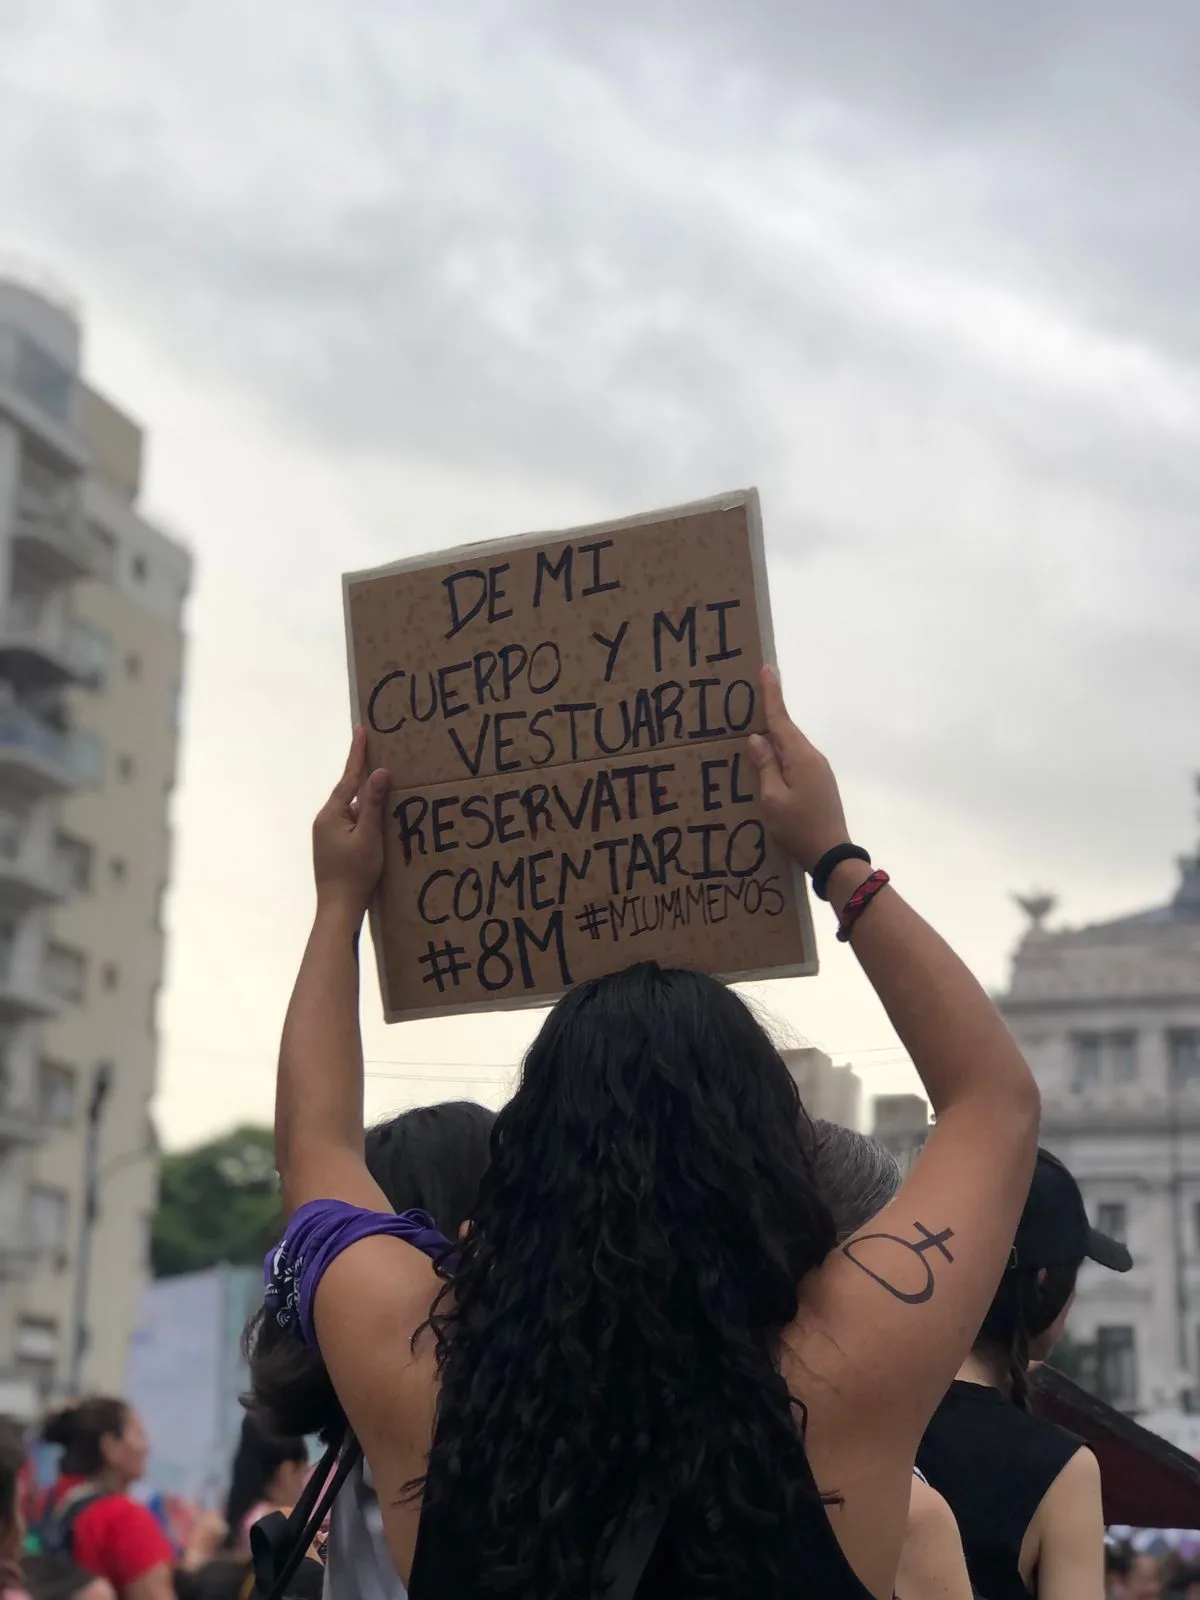 DE MI
CUERPO Y MI
VESTUARIO
RESERVATE EL
COMENTARIO
#8M #NIUNAMENOS